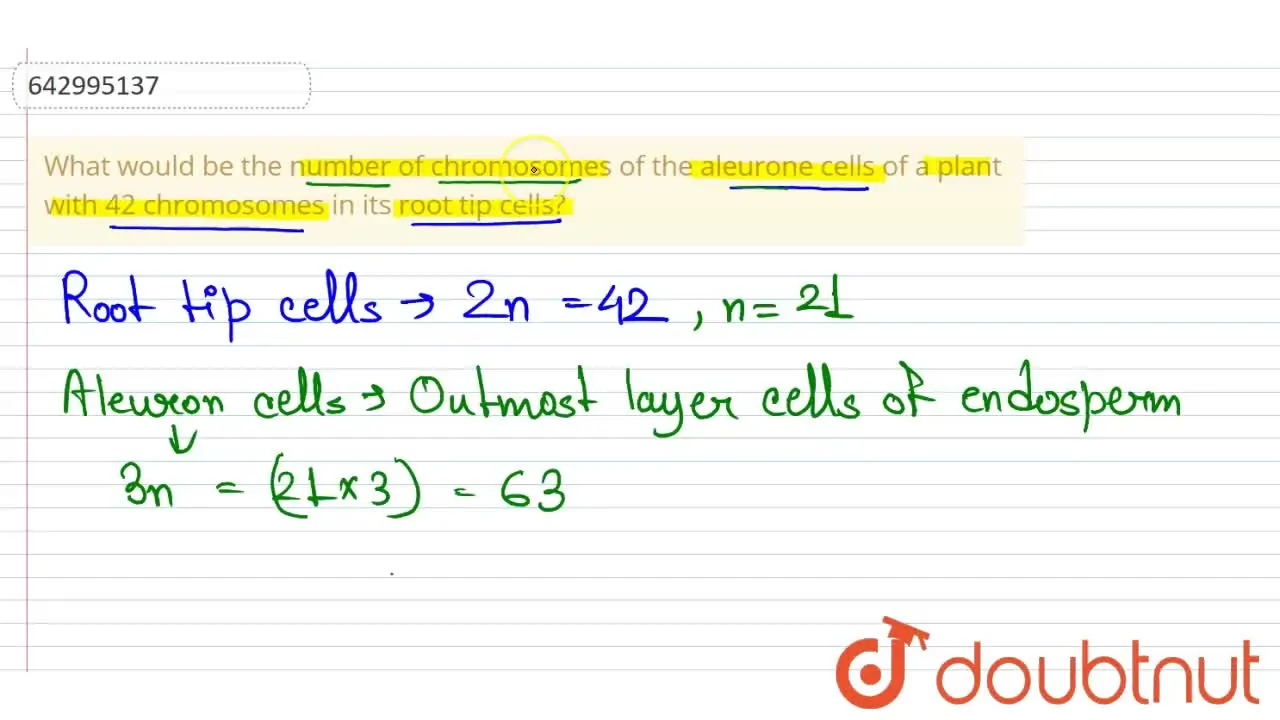 642995137
What would be the number of chromosomes of the aleurone cells of a plant
with 42 chromosomes in its root tip cells?
Root tip cells → 2n = 42 , n = 21
Aleuron cells → Outmost layer cells of endosperm
↓
3n = (21 × 3) = 63
doubtnut